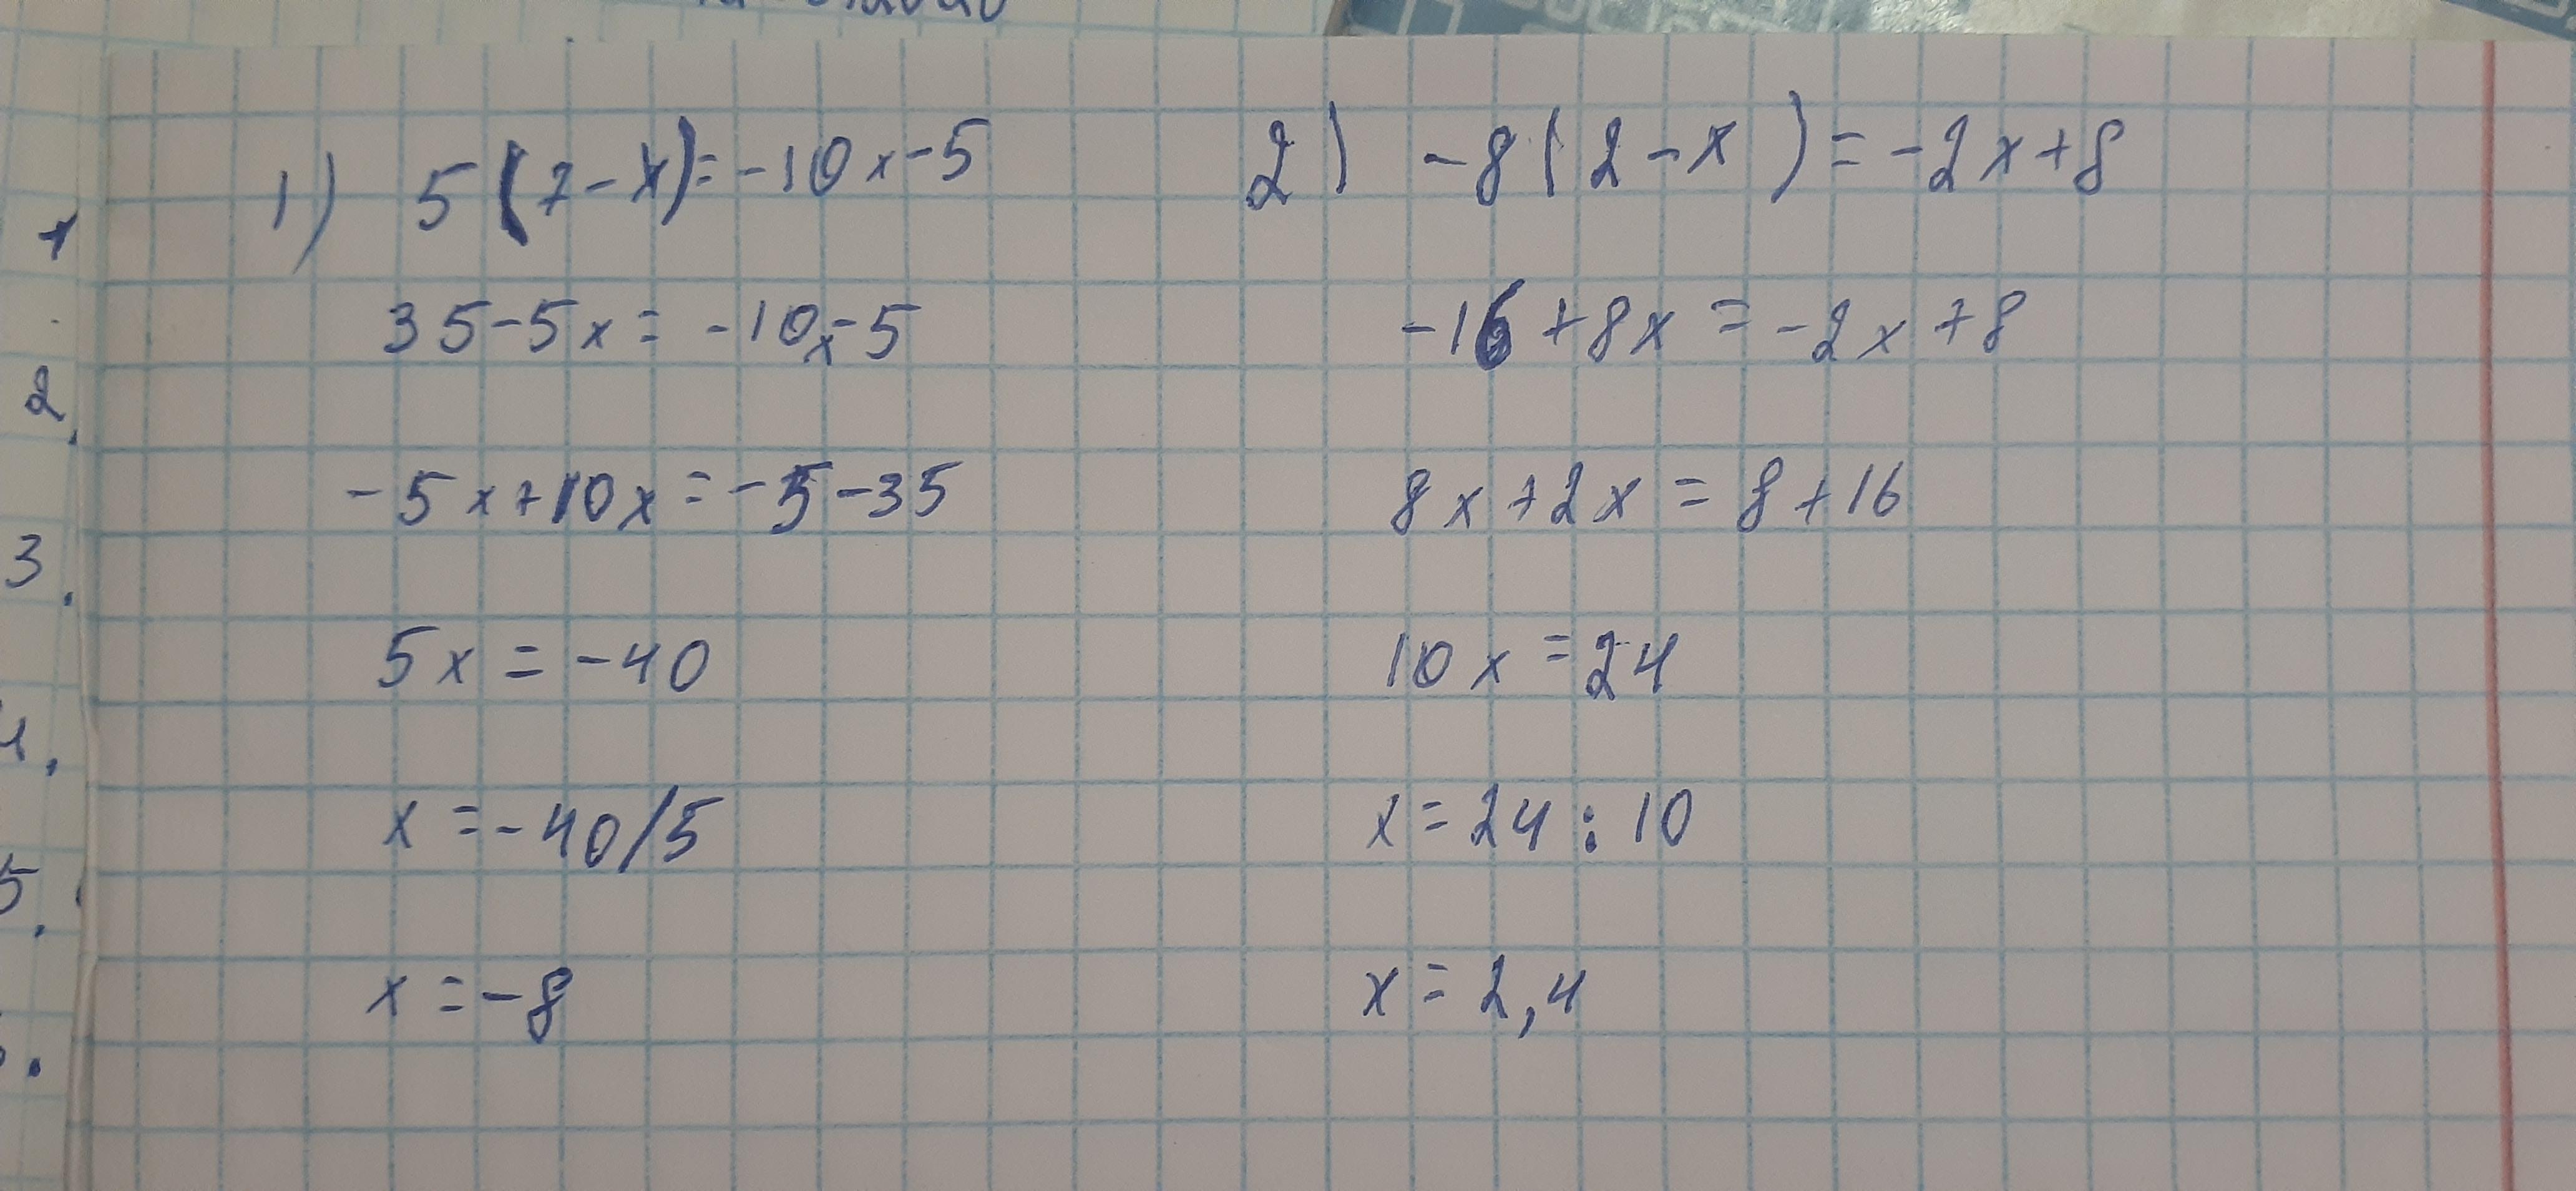 1) 5(7-x)=-10x-5
35-5x=-10x-5
-5x+10x=-5-35
5x=-40
x=-40/5
x=-8
2) -8(2-x)=-2x+8
-16+8x=-2x+8
8x+2x=8+16
10x=24
x=24:10
x=2,4
1
2.
3.
4.
5.